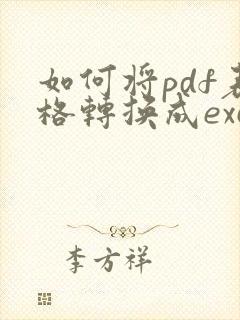 如何将pdf表
格轉換成exc
李方祥